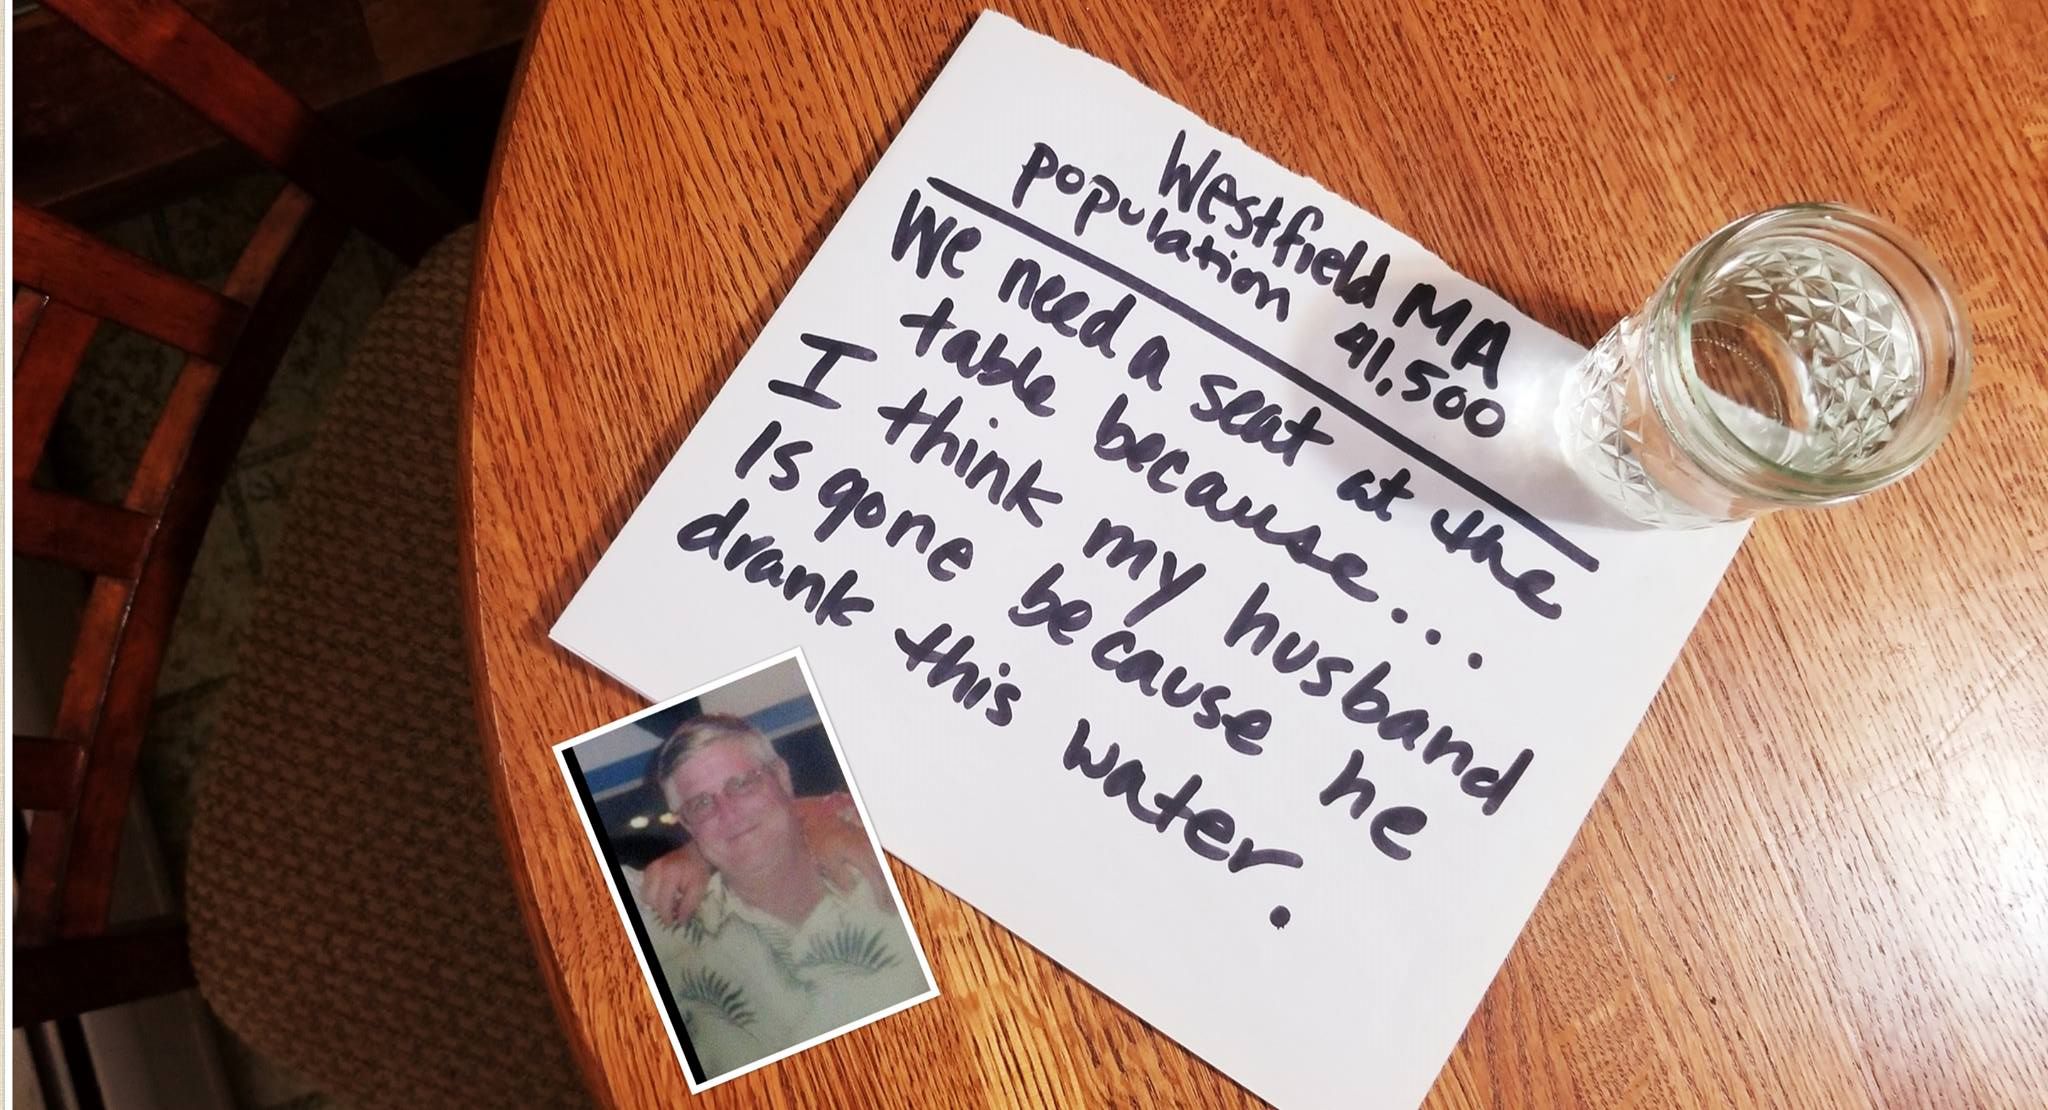 Westfield MA
population 41,500
We need a seat at the
table because...
I think my husband
Is gone because he
drank this water.